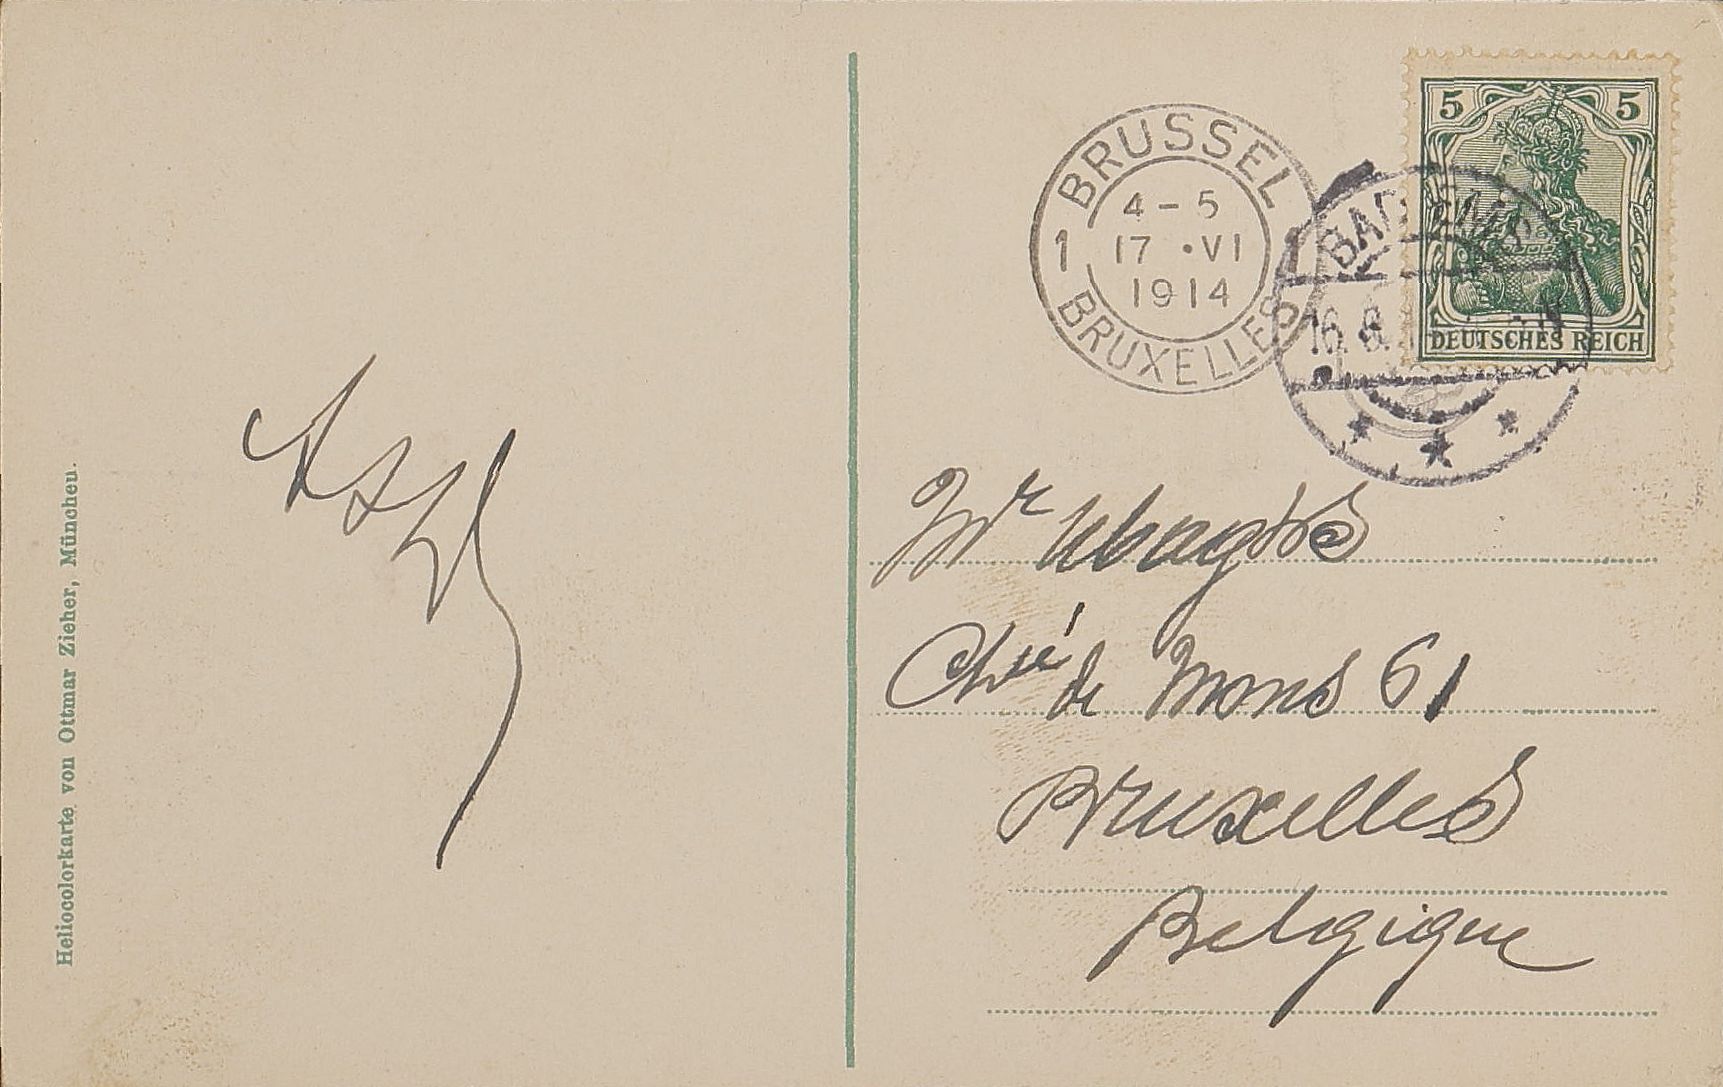 Heliocolorkarte von Ottmar Zieher, München.
BRUSSEL
4-5
17 • VI
1914
1 1
BRUXELLES
BAD EMS
16. 6.
5 5
DEUTSCHES REICH
Mr Ubaghs
Chsée de Mons 61
Bruxelles
Belgique